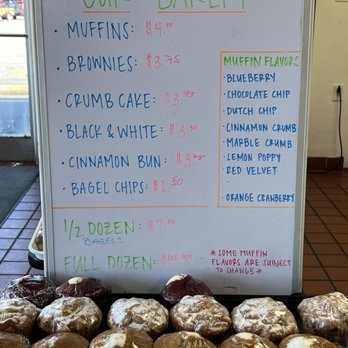 BAKERY
• MUFFINS: $4.00
• BROWNIES: $3.75
• CRUMB CAKE: $3.75
• BLACK & WHITE: $3.50
• CINNAMON BUN: $3.75
• BAGEL CHIPS: $2.50
1/2 DOZEN: $7.00
BAGELS
FULL DOZEN: $14.00
MUFFIN FLAVORS
• BLUEBERRY
• CHOCOLATE CHIP
• DUTCH CHIP
• CINNAMON CRUMB
• MARBLE CRUMB
• LEMON POPPY
• RED VELVET
• ORANGE CRANBERRY
* SOME MUFFIN
FLAVORS ARE SUBJECT
TO CHANGE *